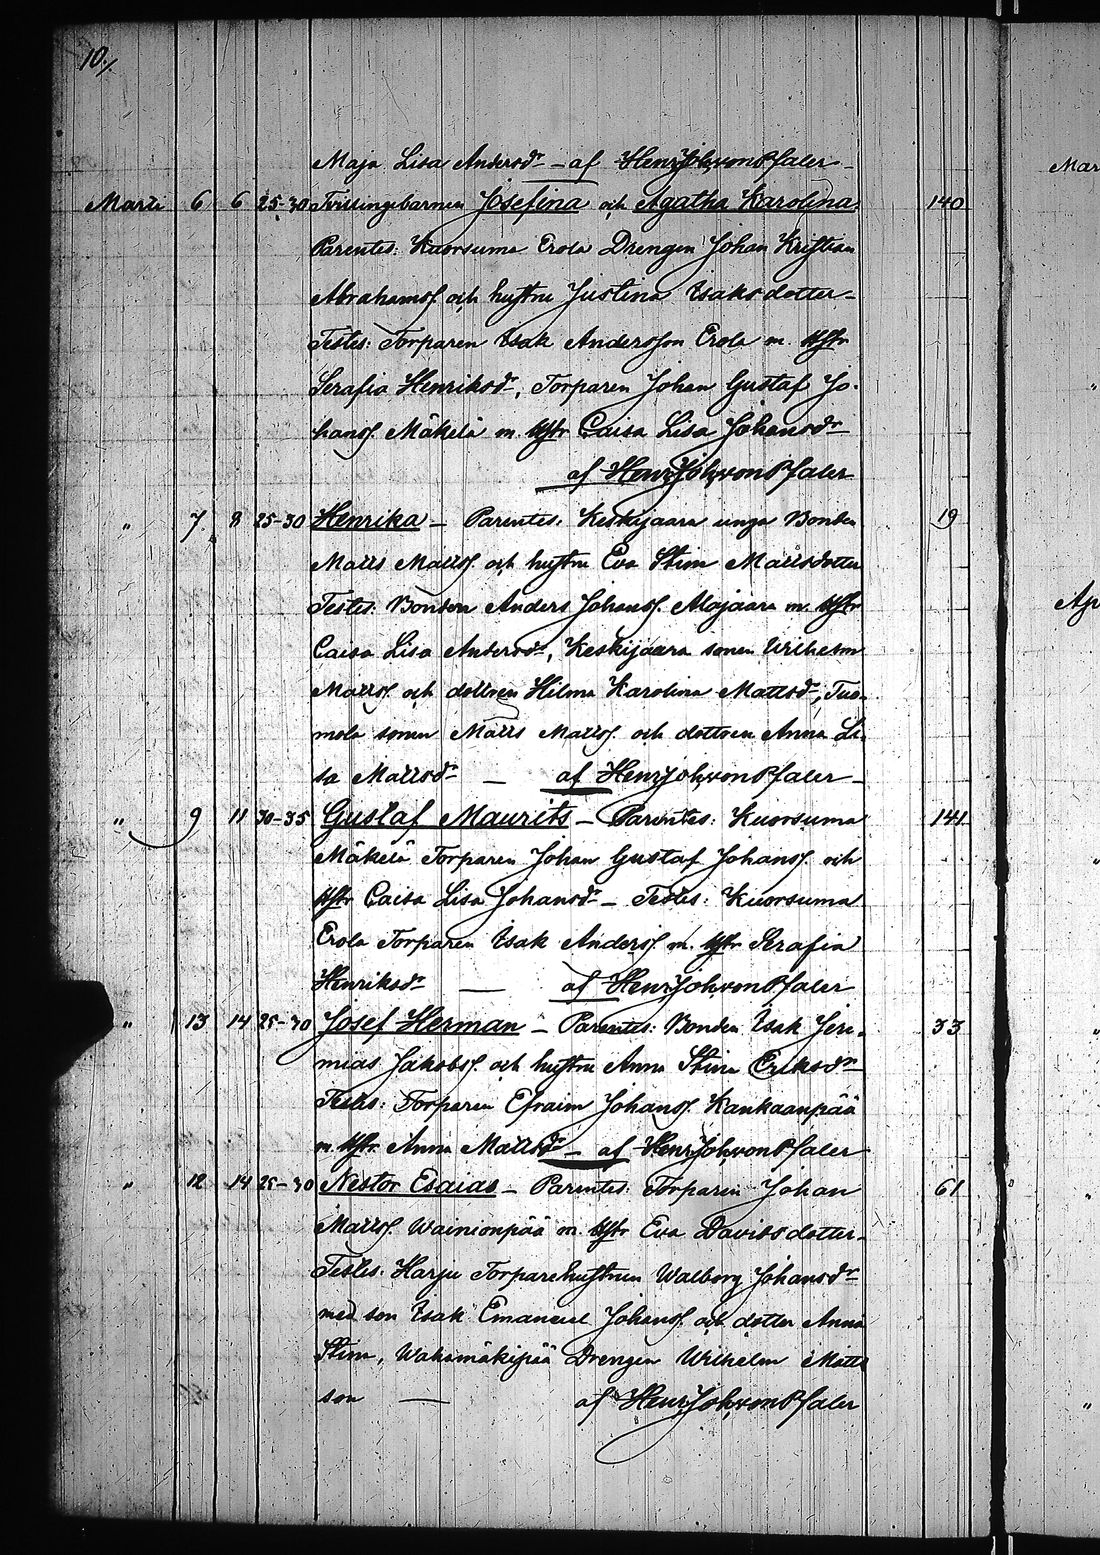 10./
Maja Lisa Andersdr – af Henr Joh von Pfaler –
Marti 6 6 25–30 Tvillingebarnen Josefina och Agatha Karolina. 140
Parentes: Kuorsuma Erola Drengen Johan Kristian
Abrahamss. och hustru Justina Isaksdotter –
Testes: Torparen Isak Andersson Erola m. Hstr
Serafia Henriksdr, Torparen Johan Gustaf Jo-
hanss. Mäkelä m. Hstr Caisa Lisa Johansdr
af Henr Joh von Pfaler
" 7. 8 25–30 Henrika – Parentes: Keskijaara unga Bonden 19
Matts Mattss. och hustru Eva Stina Mattsdotter
Testes: Bonden Anders Johanss. Alajaara m. Hstr
Caisa Lisa Andersdr, Keskijaara sonen Wilhelm
Mattss. och dottren Hilma Karolina Mattsdr, Tuo-
mola sonen Matts Mattss. och dottren Anna Li-
sa Mattsdr – af Henr Joh von Pfaler –
" 9 11 30–35 Gustaf Maurits – Parentes: Kuorsuma 141
Mäkelä Torparen Johan Gustaf Johanss. och
Hstr Caisa Lisa Johansdr – Testes: Kuorsuma
Erola Torparen Isak Anderss. m. Hstr Serafia
Henriksdr — af Henr Joh von Pfaler
" 13 14 25–30 Josef Herman – Parentes: Bonden Isak Jere- 33
mias Jakobss. och hustru Anna Stina Eriksdr
Testes: Torparen Efraim Johanss. Kankaanpää
m. Hstr Anna Mattsdr – af Henr Joh von Pfaler
" 12 14 25–30 Nestor Esaias – Parentes: Torparen Johan 61
Mattss. Wainionpää m. Hstr Eva Davidsdotter –
Testes: Harju Torparehustrun Walborg Johansdr
med son Isak Emanuel Johanss. och dotter Anna
Stina, Wahamäkipää Drengen Wilhelm Matts
son — af Henr Joh von Pfaler
Mar
Ap